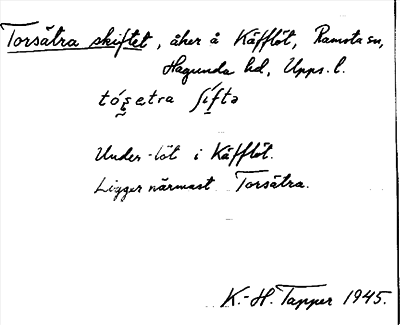 Torsätra skiftet, åker å Käfflöt, Ramsta sn,
Hagunda hd, Upps. l.
Under-löt i Käfflöt.
Ligger närmast Torsätra.
K.-H. Tapper 1945.